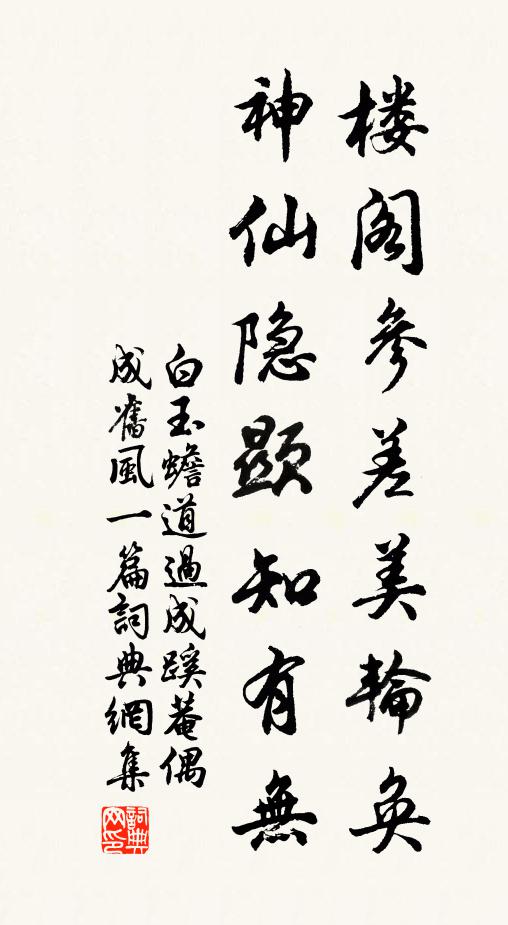 楼阁參差美輪奂
神仙隐顕知有無
白玉蟾道過成蹊菴偶
成舊風一篇詞典網集
詞典网印